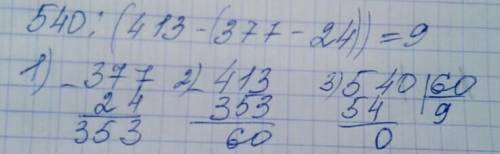 540:(413-(377-24))=9
1) -377 2) -413 3) 540|60
24 353 54 9
353 60 0